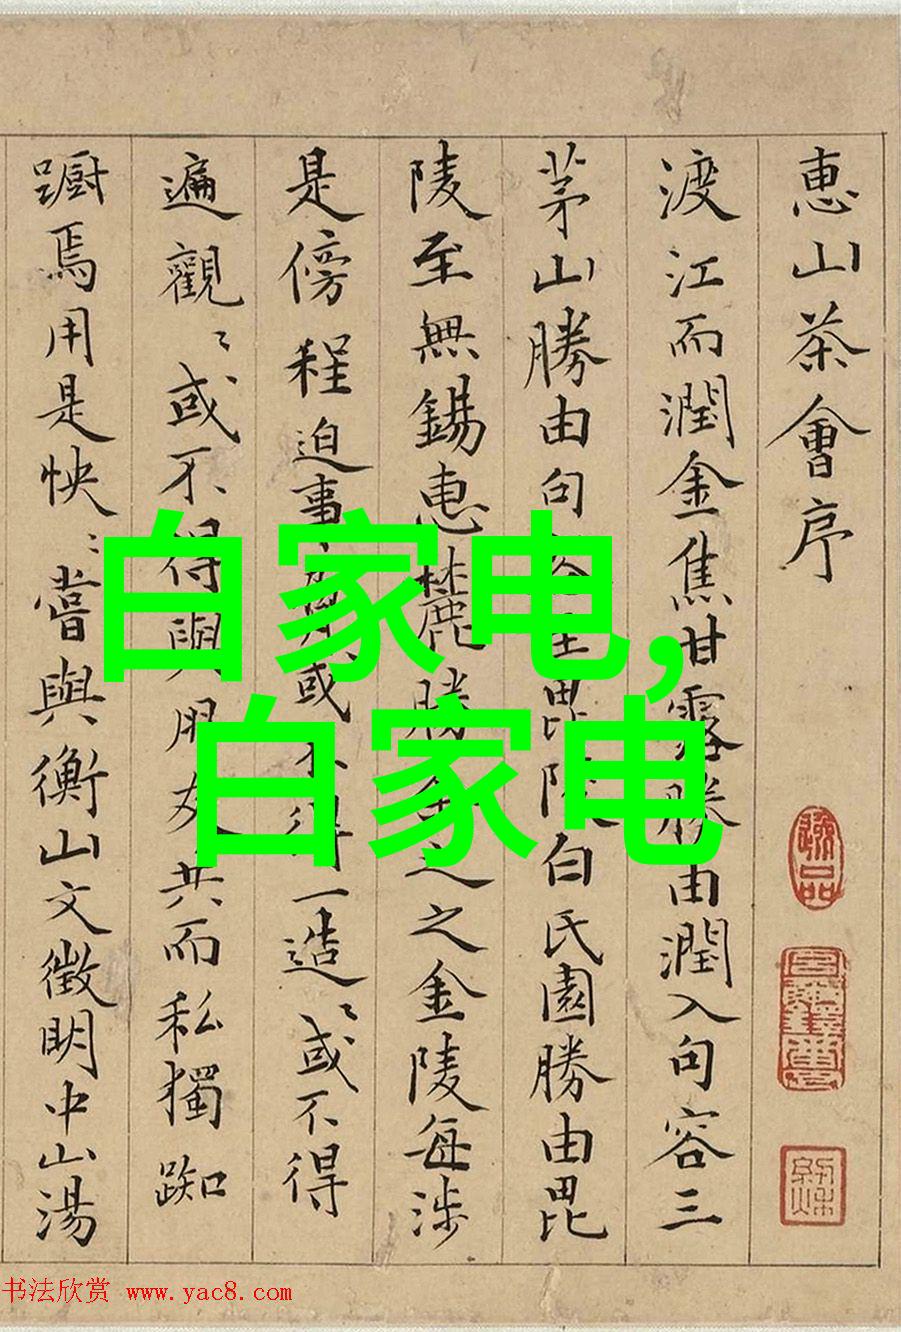 惠山茶會序
渡江而潤金焦甘露勝由潤入句容三
茅山勝由句容至毘陵白氏園勝由毘
陵至無錫惠麓勝全之之金陵每涉
是傍程迫事廢或不得一造〻或不得
遍觀〻或不得與朋友共而私獨踟
蹰焉用是怏〻嘗與衡山文徵明中山湯
白家电,
白家电
书法欣赏 www.yac8.com